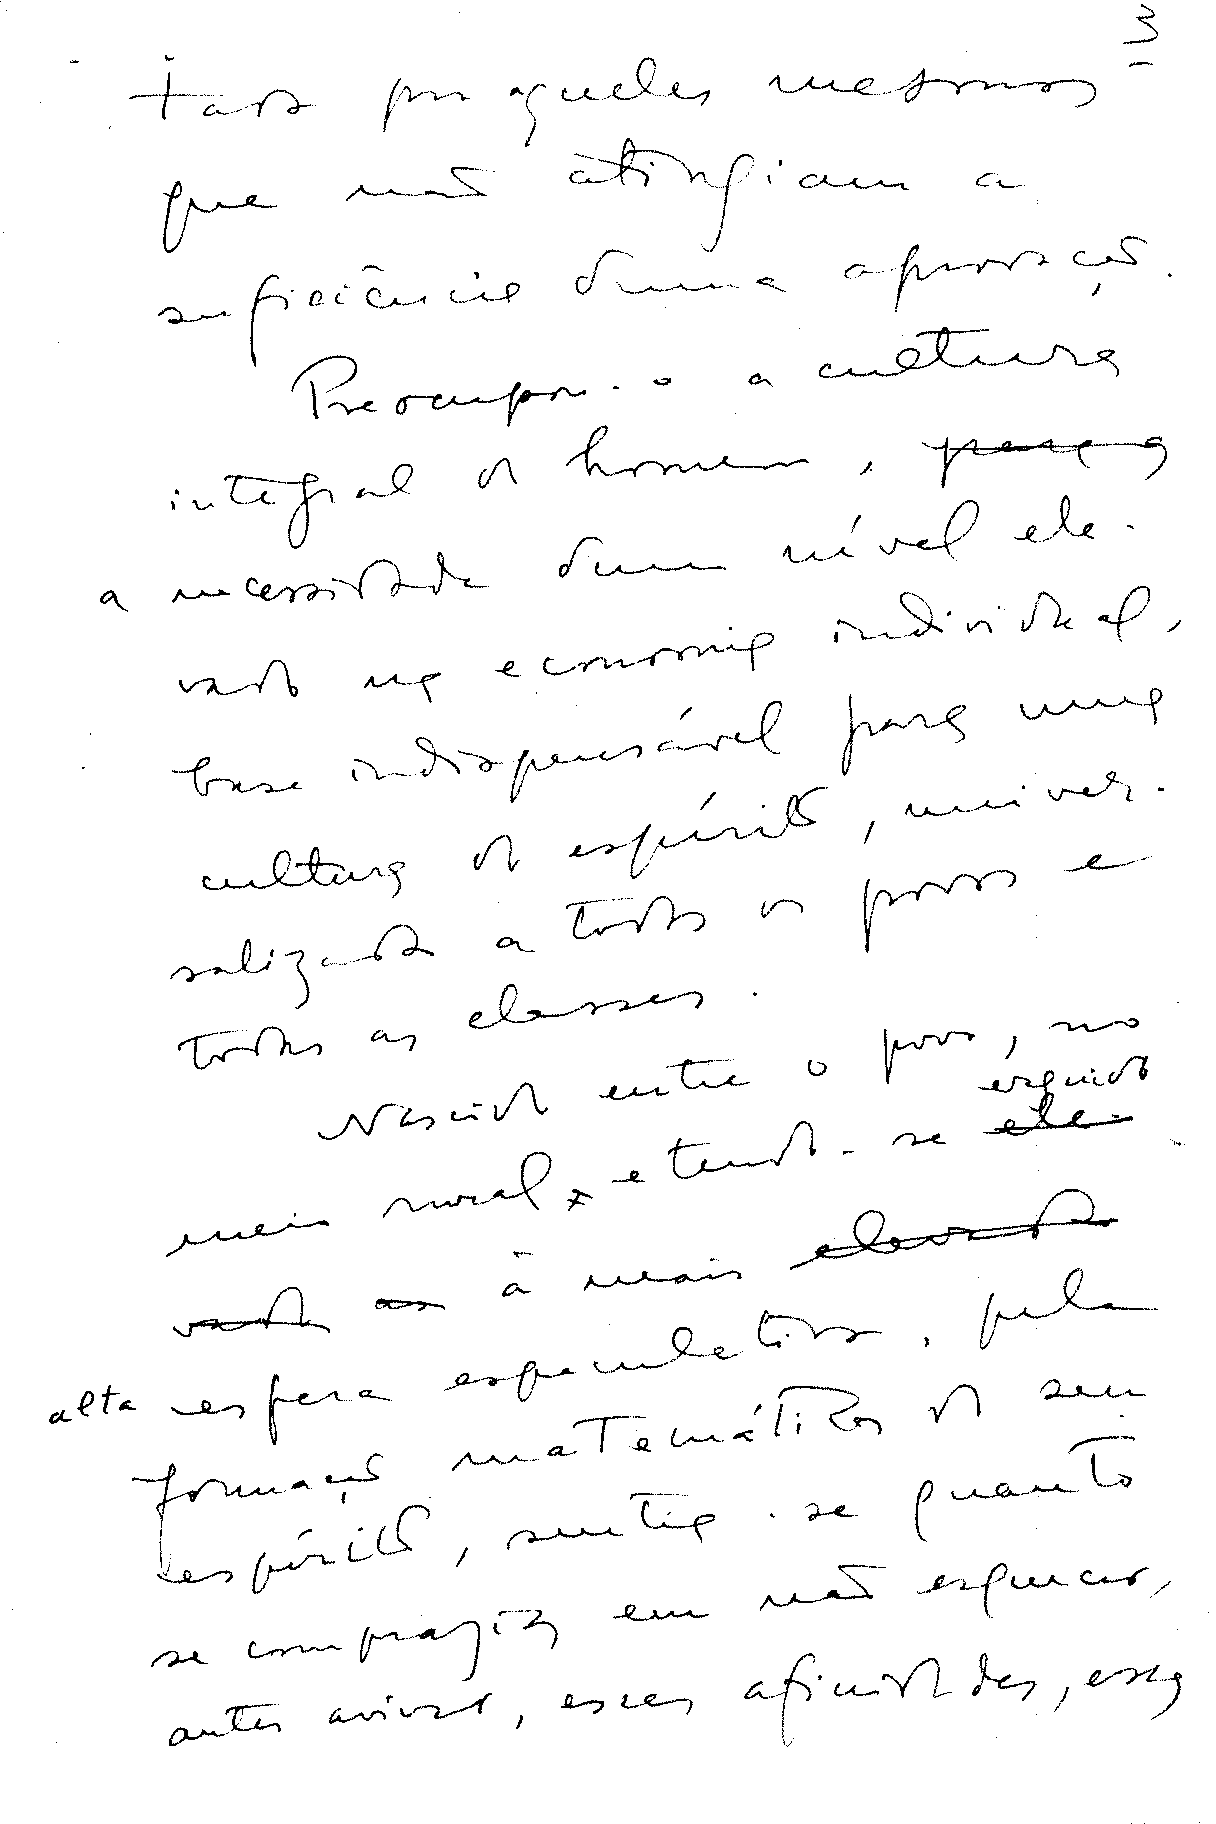 3
tado por aqueles mesmos
que não atingiam a
suficiência duma aprovação.
Preocupou-o a cultura
integral do homem, para
a necessidade dum nível ele-
vado na economia individual,
base indispensável para uma
cultura do espírito, univer-
salizada a todos os povos e
todas as classes.
Nascido entre o povo, no
erguido
meio rural, e tendo-se ele-
vado ao à mais elevada
alta esfera especulativa, pela
formação matemática do seu
espírito, sentia-se quanto
se comprazia em não esquecer,
antes avivar, esses afinidades, essa